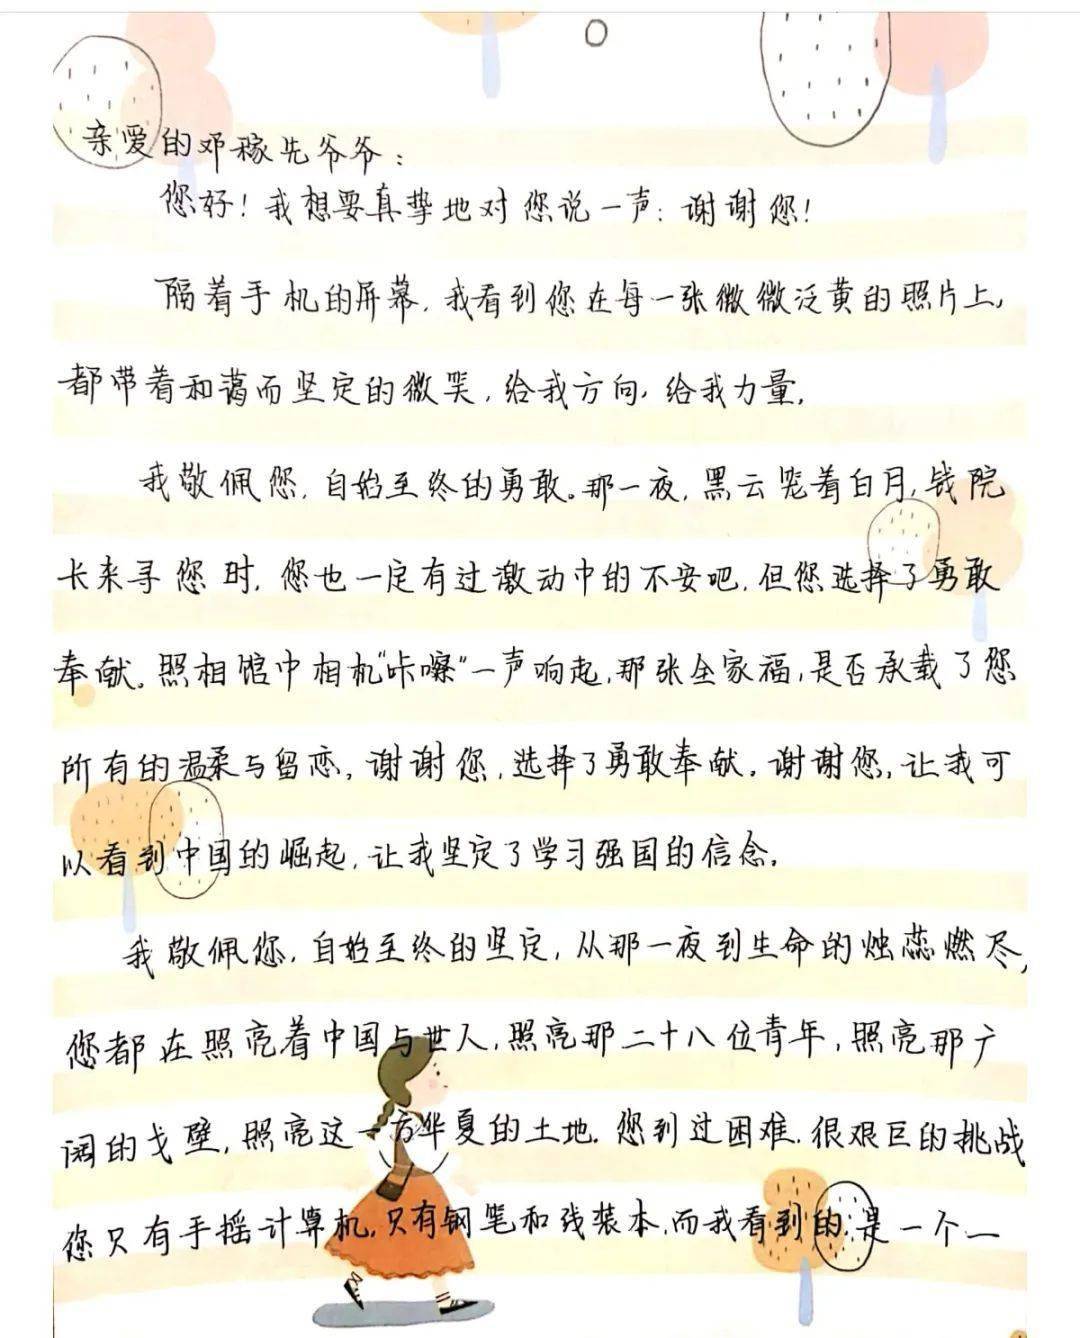 亲爱的邓稼先爷爷：
您好！我想要真挚地对您说一声：谢谢您！
隔着手机的屏幕，我看到您在每一张微微泛黄的照片上，
都带着和蔼而坚定的微笑，给我方向，给我力量。
我敬佩您，自始至终的勇敢。那一夜，黑云笼着白月，钱院
长来寻您时，您也一定有过激动中的不安吧，但您选择了勇敢
奉献。照相馆中相机"咔嚓"一声响起，那张全家福，是否承载了您
所有的温柔与留恋。谢谢您，选择了勇敢奉献。谢谢您，让我可
以看到中国的崛起，让我坚定了学习强国的信念。
我敬佩您，自始至终的坚定，从那一夜到生命的烛蕊燃尽，
您都在照亮着中国与世人，照亮那二十八位青年，照亮那广
阔的戈壁，照亮这一方华夏的土地。您到过困难，很艰巨的挑战
您只有手摇计算机，只有钢笔和线装本，而我看到的，是一个一